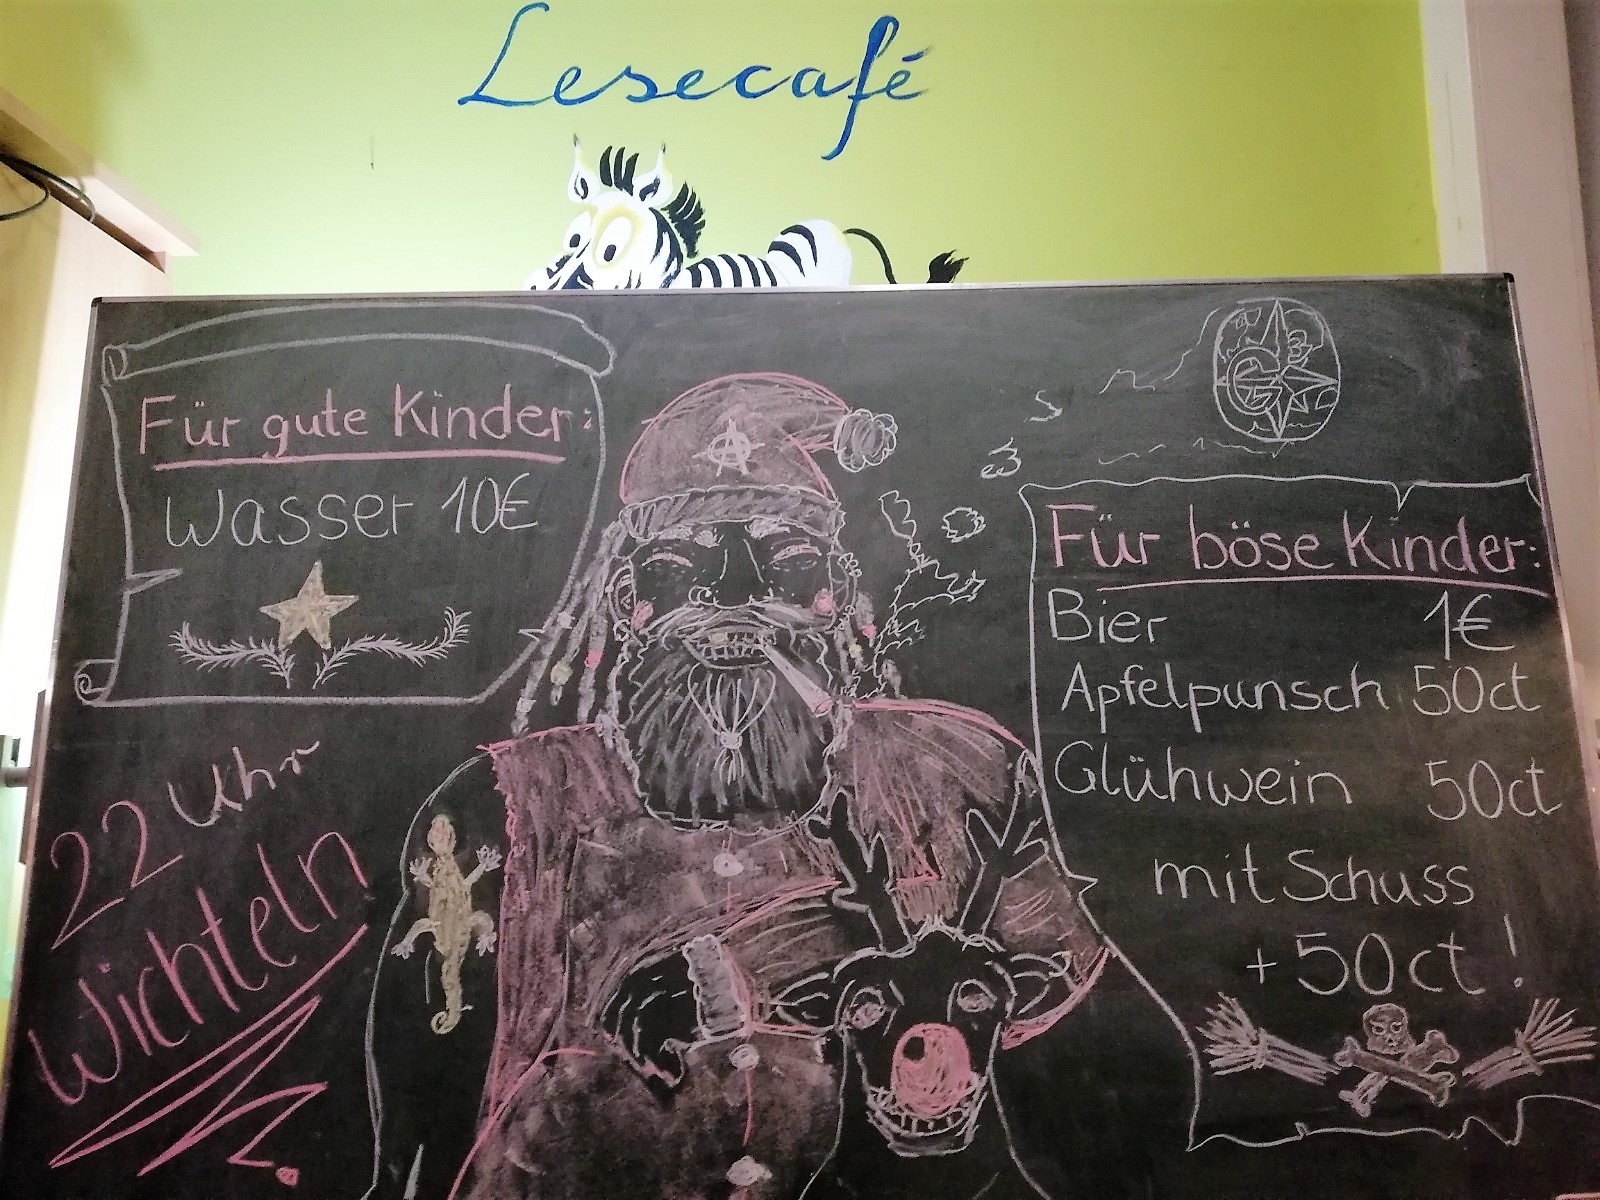 Lesecafé
Für gute Kinder:
Wasser 10€
22 Uhr
Wichteln
A
Für böse Kinder:
Bier 1€
Apfelpunsch 50ct
Glühwein 50ct
mit Schuss
+50ct!